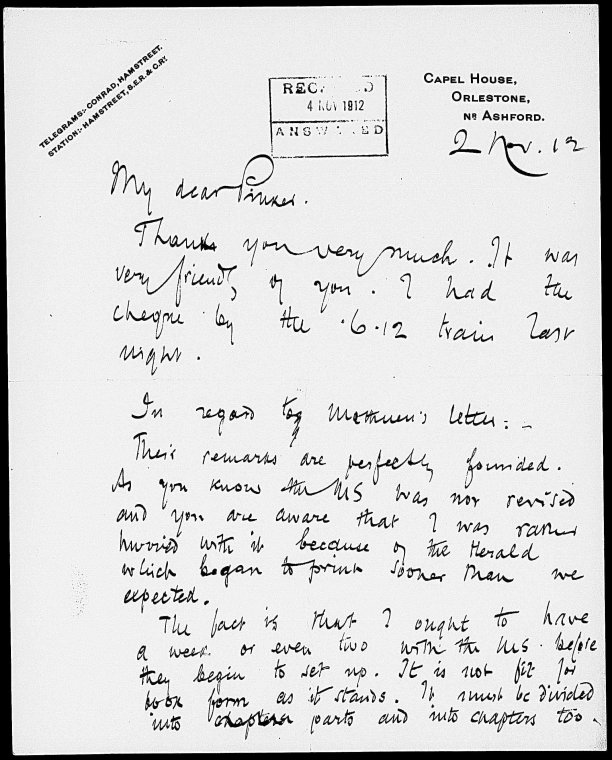 TELEGRAMS:- CONRAD, HAMSTREET.
STATION:- HAMSTREET, S.E.R. & C.RY
4 NOV 1912
CAPEL HOUSE,
ORLESTONE,
NR ASHFORD.
2 Nov. 12
My dear Pinker.
Thank you very much. It was
very friendly of you. I had the
cheque by the 6.12 train last
night.
In regard to Methuen's letter: -
Their remarks are perfectly founded.
As you know the MS was not revised
and you are aware that I was rather
hurried with it because of the Herald
which began to print sooner than we
expected.
The fact is that I ought to have
a week or even two with the MS before
they begin to set up. It is not fit for
book form as it stands. It must be divided
into parts and into chapters too.